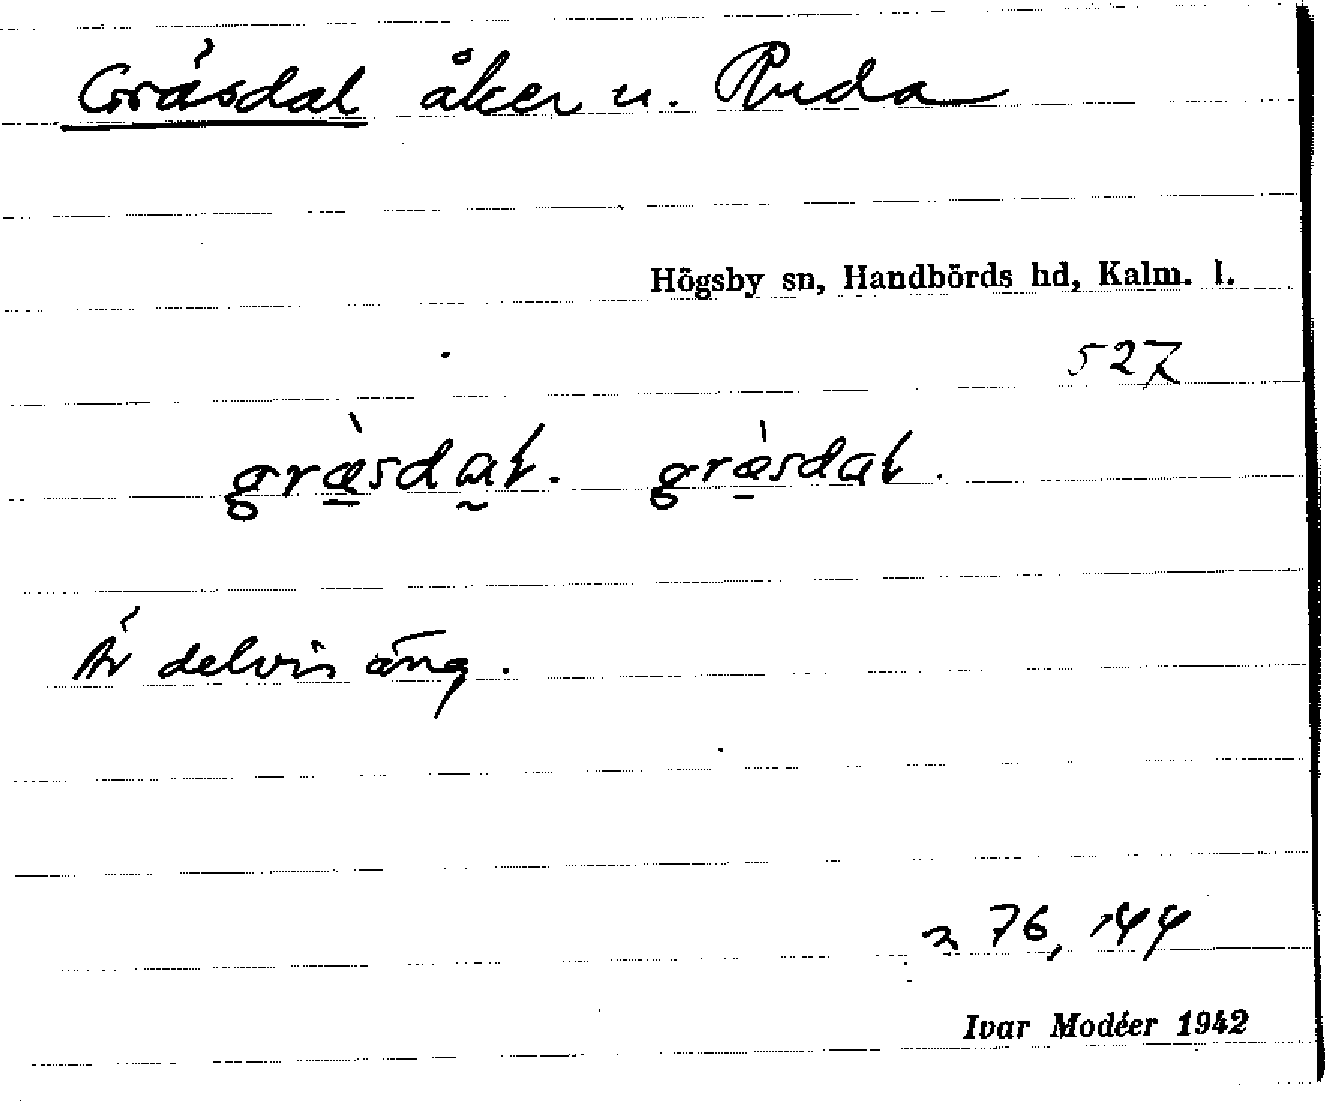 Gräsdal åker u. Ruda
Högsby sn, Handbörds hd, Kalm. l.
527
græ̀sdal. græ̀sdal.
Är delvis äng.
76, 144
Ivar Modéer 1942